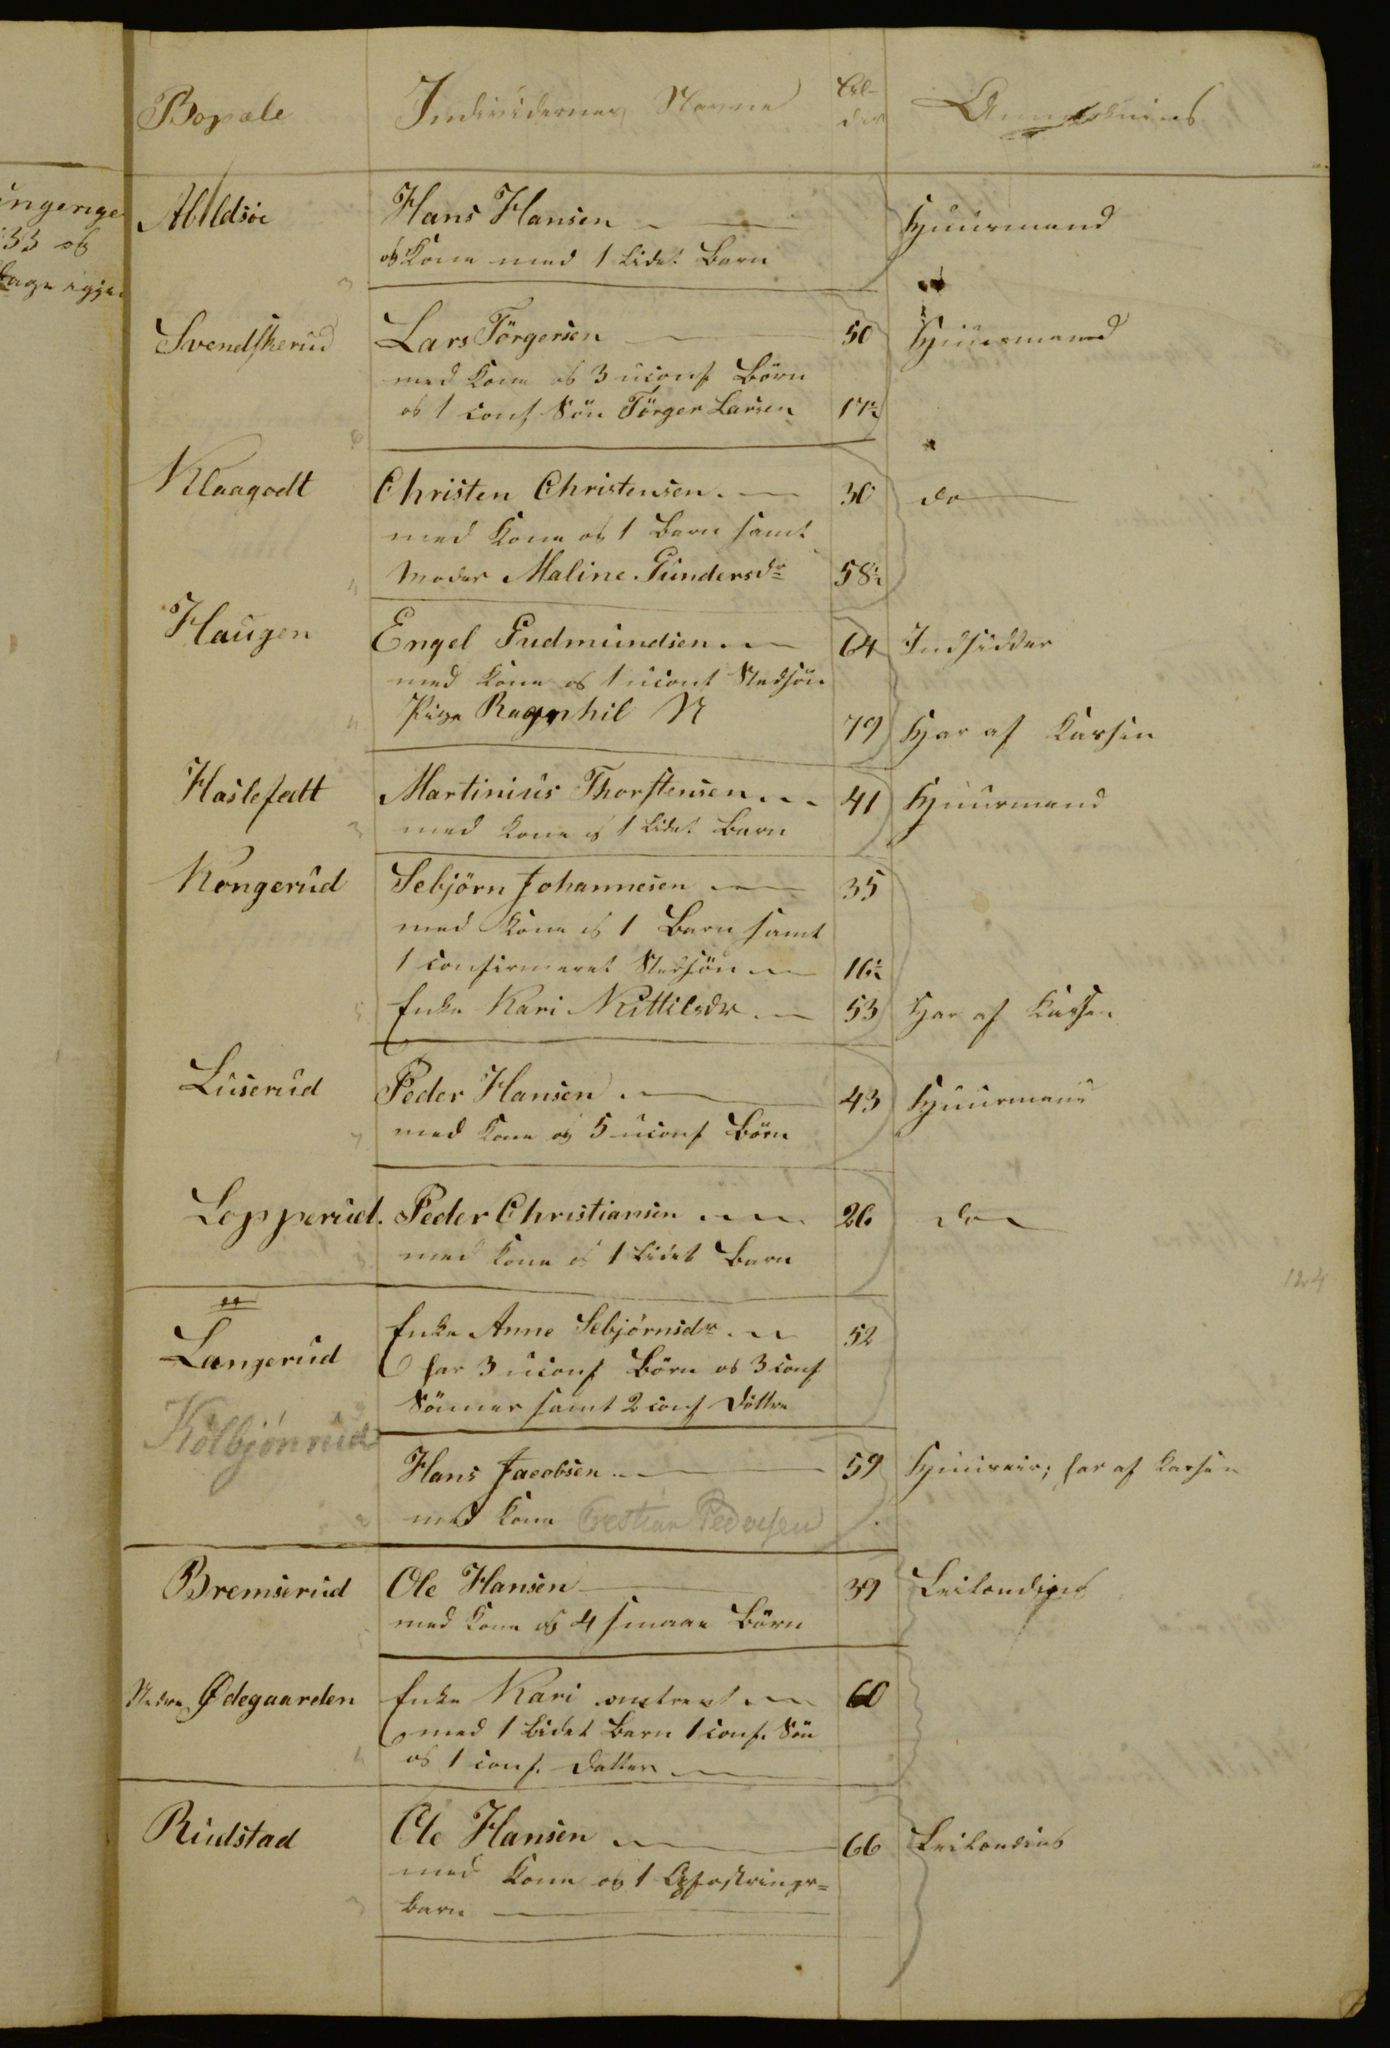 Bopæle Individernes Navne Alder Anmærkning
Abildsøe Hans Hansen Huusmand
og Kone med 1 lidet Barn
3
Svendskerud Lars Törgersen 50 Huusmand
med Kone og 3 uconf Börn
og 1 conf Sön Törger Larsen 17
6
Klaagodt Christen Christensen 30 do
med Kone og 1 Barn samt
Moder Maline Gundersdr 58
4
Haugen Engel Gudmundsen 64 Indsidder
med Kone og 1 uconf Stedsön
Pige Ragnhil N 79 Har af Kassen
4
Haslefatt Martinius Thorstensen 41 Huusmand
med Kone og 1 lidet Barn
3
Kongerud Sebjörn Johannesen 35
med Kone og 1 Barn samt
1 confirmeret Stedsön 16
Enke Kari Kittilsdr 53 Har af Kassen
5
Luserud Peder Hansen 43 Huusmand
med Kone og 5 uconf Börn
7
Lopperud. Peder Christiansen 26 do
med Kone og 1 lidet Barn
3
124
Langerud Enke Anne Sebjörnsdr 52
har 3 uconf Börn og 3 conf
Sönner samt 2 conf Döttre
9
Kolbjönrud
Hans Jacobsen 59 har af Kassen
med Kone Crestian Pedersen
2
Bremserud Ole Hansen 39 Leilending
med Kone og 4 smaae Börn
Nedre Ødegaarden Enke Kari 60
med 1 lidet Barn 1 conf. Sön
og 1 conf. Datter
4
Rudstad Ole Hansen 66 Leilending
med Kone og 1 Opfostrings-
barn
3
ingerige
33 og
tage igje